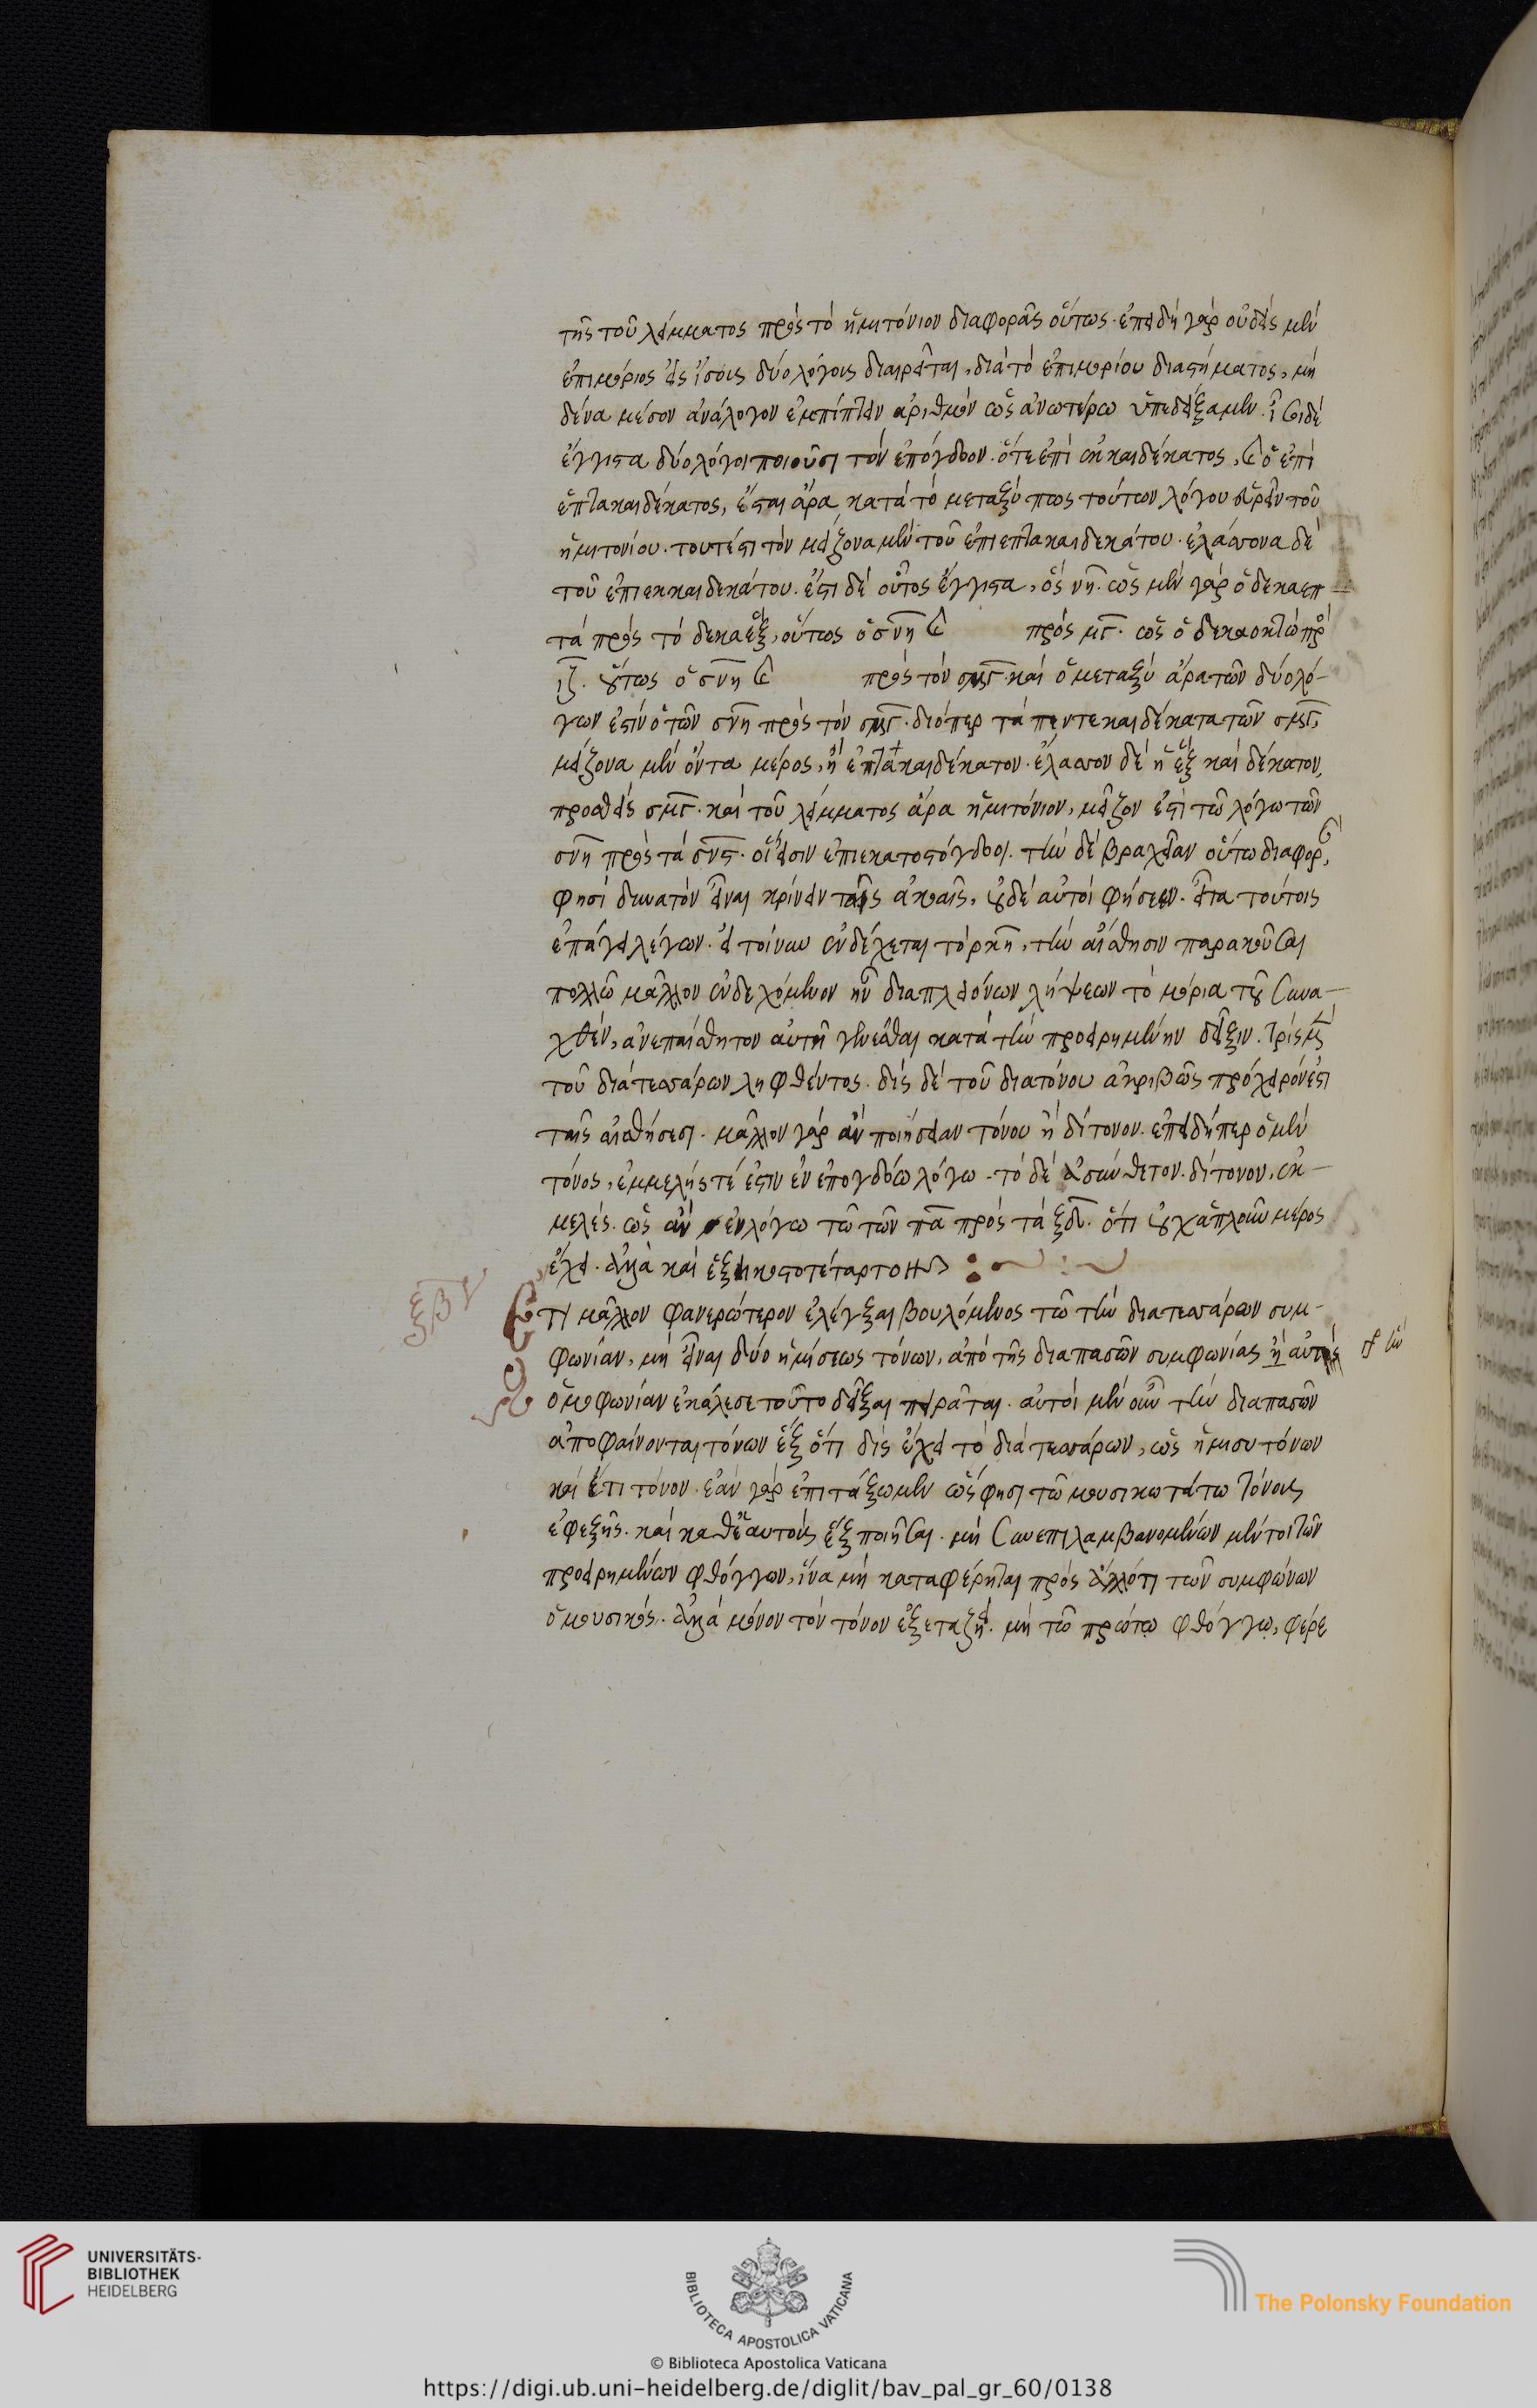 τῆς τοῦ λείμματος πρὸς τὸ ἡμιτόνιον διαφορᾶς οὕτως. ἐπειδὴ γὰρ οὐδεὶς μὲν
ἐπιμόριος εἰς ἴσους δύο λόγους διαιρεῖται, διὰ τὸ ἐπιμορίου διαστήματος, μη
δένα μέσον ἀνάλογον ἐμπίπτειν ἀριθμὸν ὡς ἀνωτέρω ὑπεδείξαμεν. οἱ δὲ
ἔγγιστα δύο λόγοι ποιοῦσι τὸν ἐπόγδοον. ὅτε ἐπὶ ἑκκαιδέκατος, καὶ ὁ ἐπὶ
ἑπτακαιδέκατος, ἔσται ἄρα κατὰ τὸ μεταξύ πως τούτων λόγου εὑρεῖν τοῦ
ἡμιτονίου. τουτέστι τὸν μείζονα μὲν τοῦ ἐπιεπτακαιδεκάτου. ἐλάσσονα δὲ
τοῦ ἐπιεκκαιδεκάτου. ἔστι δὲ οὗτος ἔγγιστα, ὅς νη. ὡς μὲν γὰρ ὁ δεκαεπ-
τὰ πρὸς τὸ δεκαέξ, οὕτως ὁ σνη καὶ πρὸς μγ. ὡς ὁ δεκαοκτὼ πρὸς
ιζ. οὕτως ὁ σνη καὶ πρὸς τὸν σμγ. καὶ ὁ μεταξὺ ἄρα τῶν δύο λό-
γων ἐστὶν ὁ τῶν σνη πρὸς τὸν σμγ. διόπερ τὰ πεντεκαιδέκατα τῶν σμγ,
μείζονα μὲν ὄντα μέρος, ἢ ἑπτακαιδέκατον. ἔλασσον δὲ ἢ ἓξ καὶ δέκατον,
προσθεὶς σμγ. καὶ τοῦ λείμματος ἄρα ἡμιτόνιον, μεῖζον ἐστὶ τῷ λόγῳ τῶν
σνη πρὸς τὰ σνς. οἵ εἰσιν ἐπιεκατοστόγδοοι. τὴν δὲ βραχεῖαν οὕτω διαφορὰν,
φησὶ δυνατὸν εἶναι κρίνειν ταῖς ἀκοαῖς, οὐδὲ αὐτοὶ φήσειεν. εἶτα τούτοις
ἐπάγει λέγων. εἰ τοίνυν ἐνδέχεται τὸ ρκη, τὴν αἴσθησιν παρακοῦσαι
πολλῷ μᾶλλον ἐνδεχόμενον ἦν διὰ πλειόνων λήψεων τὸ μόρια τοῦ συνα-
χθέν, ἀνεπαίσθητον αὐτῇ γενέσθαι κατὰ τὴν προειρημένην δεῖξιν. τρὶς μὲν
τοῦ διὰ τεσσάρων ληφθέντος. δὶς δὲ τοῦ διατόνου ἀκριβῶς πρόχειρόν ἐστι
ταῖς αἰσθήσεσι. μᾶλλον γὰρ ἂν ποιήσειαν τόνου ἢ δίτονον. ἐπειδήπερ ὁ μὲν
τόνος, ἐμμελής τέ ἐστιν ἐν ἐπογδόῳ λόγῳ. τὸ δὲ ἀσύνθετον. δίτονον, ἐκ-
μελές. ὡς ἂν ἐν λόγῳ τῷ τῶν πα πρὸς τὰ ξδ. ὅτι οὐχ ἁπλοῦν μέρος
ἔχει. ἀλλὰ καὶ ἑξηκοστοτέταρτον
ξβον
Ἔτι μᾶλλον φανερώτερον ἐλέγξαι βουλόμενος τῷ τὴν διὰ τεσσάρων συμ-
φωνίαν, μὴ εἶναι δύο ἡμίσεως τόνων, ἀπὸ τῆς διὰ πασῶν συμφωνίας ἢ αὐτὸς
ὁμοφωνίαν ἐκάλεσε τοῦτο δεῖξαι πειρᾶται. αὐτοὶ μὲν οὖν τὴν διὰ πασῶν
ἀποφαίνονται τόνων ἓξ ὅτι δὶς ἔχει τὸ διὰ τεσσάρων, ὡς ἥμισυ τόνων
καὶ ἔτι τόνον. ἐὰν γὰρ ἐπιτάξωμεν ὥς φησι τῷ μουσικωτάτῳ τόνους
ἐφεξῆς. καὶ καθ' ἑαυτοὺς ἓξ ποιῆσαι. μὴ συνεπιλαμβανομένων μέντοι τῶν
προειρημένων φθόγγων, ἵνα μὴ καταφέρηται πρὸς ἄλλο τι τῶν συμφώνων
ὁ μουσικός. ἀλλὰ μόνον τὸν τόνον ἐξεταζῃ. μὴ τῷ πρώτῳ φθόγγῳ, φέρε
UNIVERSITÄTS-
BIBLIOTHEK
HEIDELBERG
BIBLIOTECA APOSTOLICA VATICANA
The Polonsky Foundation
© Biblioteca Apostolica Vaticana
https://digi.ub.uni-heidelberg.de/diglit/bav_pal_gr_60/0138